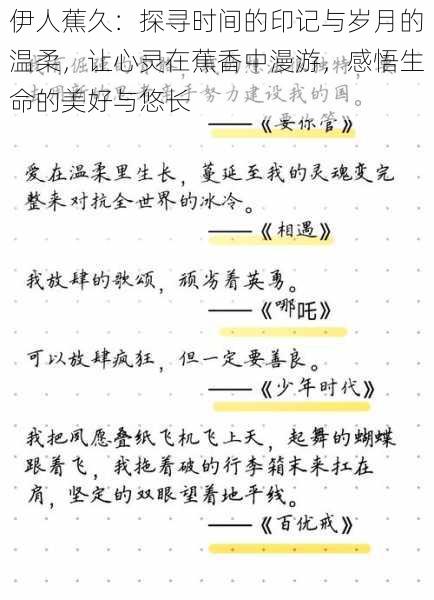 伊人蕉久：探寻时间的印记与岁月的
温柔，让心灵在蕉香中漫游，感悟生
命的美好与悠长
努力建设我的国。
——《要你管》
爱在温柔里生长，蔓延至我的灵魂变完
整来对抗全世界的冰冷。
——《相遇》
我放肆的歌颂，顽劣着英勇。
——《哪吒》
可以放肆疯狂，但一定要善良。
——《少年时代》
我把夙愿叠纸飞机飞上天，起舞的蝴蝶
跟着飞，我拖着破的行李箱末来扛在
肩，坚定的双眼望着地平线。
——《百优戒》